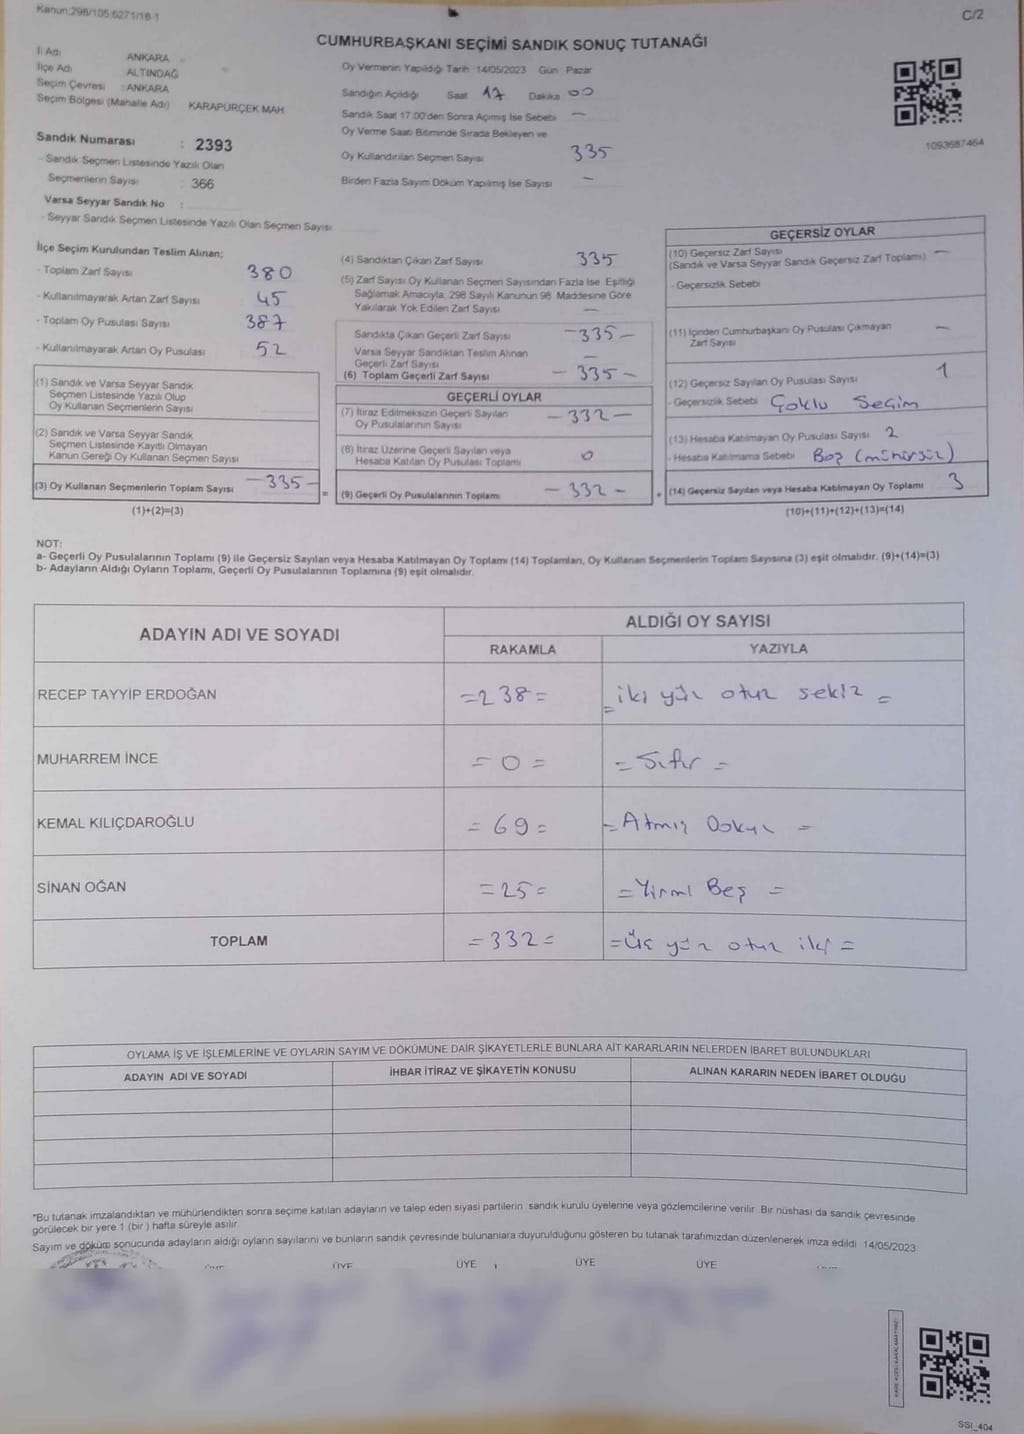 Kanun:298/105,6271/18-1
C/2
CUMHURBAŞKANI SEÇİMİ SANDIK SONUÇ TUTANAĞI
İl Adı ANKARA
İlçe Adı ALTINDAĞ
Seçim Çevresi : ANKARA
Seçim Bölgesi (Mahalle Adı) KARAPÜRÇEK MAH
Sandık Numarası : 2393
- Sandık Seçmen Listesinde Yazılı Olan
Seçmenlerin Sayısı : 366
Varsa Seyyar Sandık No :
- Seyyar Sandık Seçmen Listesinde Yazılı Olan Seçmen Sayısı
Oy Vermenin Yapıldığı Tarih 14/05/2023 Gün Pazar
Sandığın Açıldığı Saat 17 Dakika 00
Sandık Saat 17.00'den Sonra Açımış İse Sebebi —
Oy Verme Saati Bitiminde Sırada Bekleyen ve
Oy Kullandırılan Seçmen Sayısı 335
Birden Fazla Sayım Döküm Yapılmış İse Sayısı –
1093687464
İlçe Seçim Kurulundan Teslim Alınan;
- Toplam Zarf Sayısı 380
- Kullanılmayarak Artan Zarf Sayısı 45
- Toplam Oy Pusulası Sayısı 387
- Kullanılmayarak Artan Oy Pusulası 52
(1) Sandık ve Varsa Seyyar Sandık
Seçmen Listesinde Yazılı Olup
Oy Kullanan Seçmenlerin Sayısı
(2) Sandık ve Varsa Seyyar Sandık
Seçmen Listesinde Kayıtlı Olmayan
Kanun Gereği Oy Kullanan Seçmen Sayısı
(3) Oy Kullanan Seçmenlerin Toplam Sayısı —335—
(1)+(2)=(3)
(4) Sandıktan Çıkan Zarf Sayısı 335
(5) Zarf Sayısı Oy Kullanan Seçmen Sayısından Fazla İse Eşitliği
Sağlamak Amacıyla, 298 Sayılı Kanunun 98 Maddesine Göre
Yakılarak Yok Edilen Zarf Sayısı —
Sandıkta Çıkan Geçerli Zarf Sayısı —335—
Varsa Seyyar Sandıktan Teslim Alınan
Geçerli Zarf Sayısı —
(6) Toplam Geçerli Zarf Sayısı —335—
GEÇERLİ OYLAR
(7) İtiraz Edilmeksizin Geçerli Sayılan
Oy Pusulalarının Sayısı —332—
(8) İtiraz Üzerine Geçerli Sayılan veya
Hesaba Katılan Oy Pusulası Toplamı 0
= (9) Geçerli Oy Pusulalarının Toplamı —332—
GEÇERSİZ OYLAR
(10) Geçersiz Zarf Sayısı —
(Sandık ve Varsa Seyyar Sandık Geçersiz Zarf Toplamı)
- Geçersizlik Sebebi
(11) İçinden Cumhurbaşkanı Oy Pusulası Çıkmayan
Zarf Sayısı —
(12) Geçersiz Sayılan Oy Pusulası Sayısı 1
- Geçersizlik Sebebi Çoklu Seçim
(13) Hesaba Katılmayan Oy Pusulası Sayısı 2
- Hesaba Katılmama Sebebi Boş (mühürsüz)
+ (14) Geçersiz Sayılan veya Hesaba Katılmayan Oy Toplamı 3
(10)+(11)+(12)+(13)=(14)
NOT:
a- Geçerli Oy Pusulalarının Toplamı (9) ile Geçersiz Sayılan veya Hesaba Katılmayan Oy Toplamı (14) Toplamları, Oy Kullanan Seçmenlerin Toplam Sayısına (3) eşit olmalıdır. (9)+(14)=(3)
b- Adayların Aldığı Oyların Toplamı, Geçerli Oy Pusulalarının Toplamına (9) eşit olmalıdır.
ADAYIN ADI VE SOYADI ALDIĞI OY SAYISI
RAKAMLA YAZIYLA
RECEP TAYYİP ERDOĞAN =238= =iki yüz otuz sekiz =
MUHARREM İNCE = 0 = = Sıfır =
KEMAL KILIÇDAROĞLU = 69 = = Atmış Dokuz =
SİNAN OĞAN =25= =Yirmi Beş =
TOPLAM =332= =Üç yüz otuz iki =
OYLAMA İŞ VE İŞLEMLERİNE VE OYLARIN SAYIM VE DÖKÜMÜNE DAİR ŞİKAYETLERLE BUNLARA AİT KARARLARIN NELERDEN İBARET BULUNDUKLARI
ADAYIN ADI VE SOYADI İHBAR İTİRAZ VE ŞİKAYETİN KONUSU ALINAN KARARIN NEDEN İBARET OLDUĞU
*Bu tutanak imzalandıktan ve mühürlendikten sonra seçime katılan adayların ve talep eden siyasi partilerin sandık kurulu üyelerine veya gözlemcilerine verilir. Bir nüshası da sandık çevresinde
görülecek bir yere 1 (bir ) hafta süreyle asılır.
Sayım ve döküm sonucunda adayların aldığı oyların sayılarını ve bunların sandık çevresinde bulunanlara duyurulduğunu gösteren bu tutanak tarafımızdan düzenlenerek imza edildi 14/05/2023
ÜYE ÜYE ÜYE ÜYE ÜYE
SSI_404